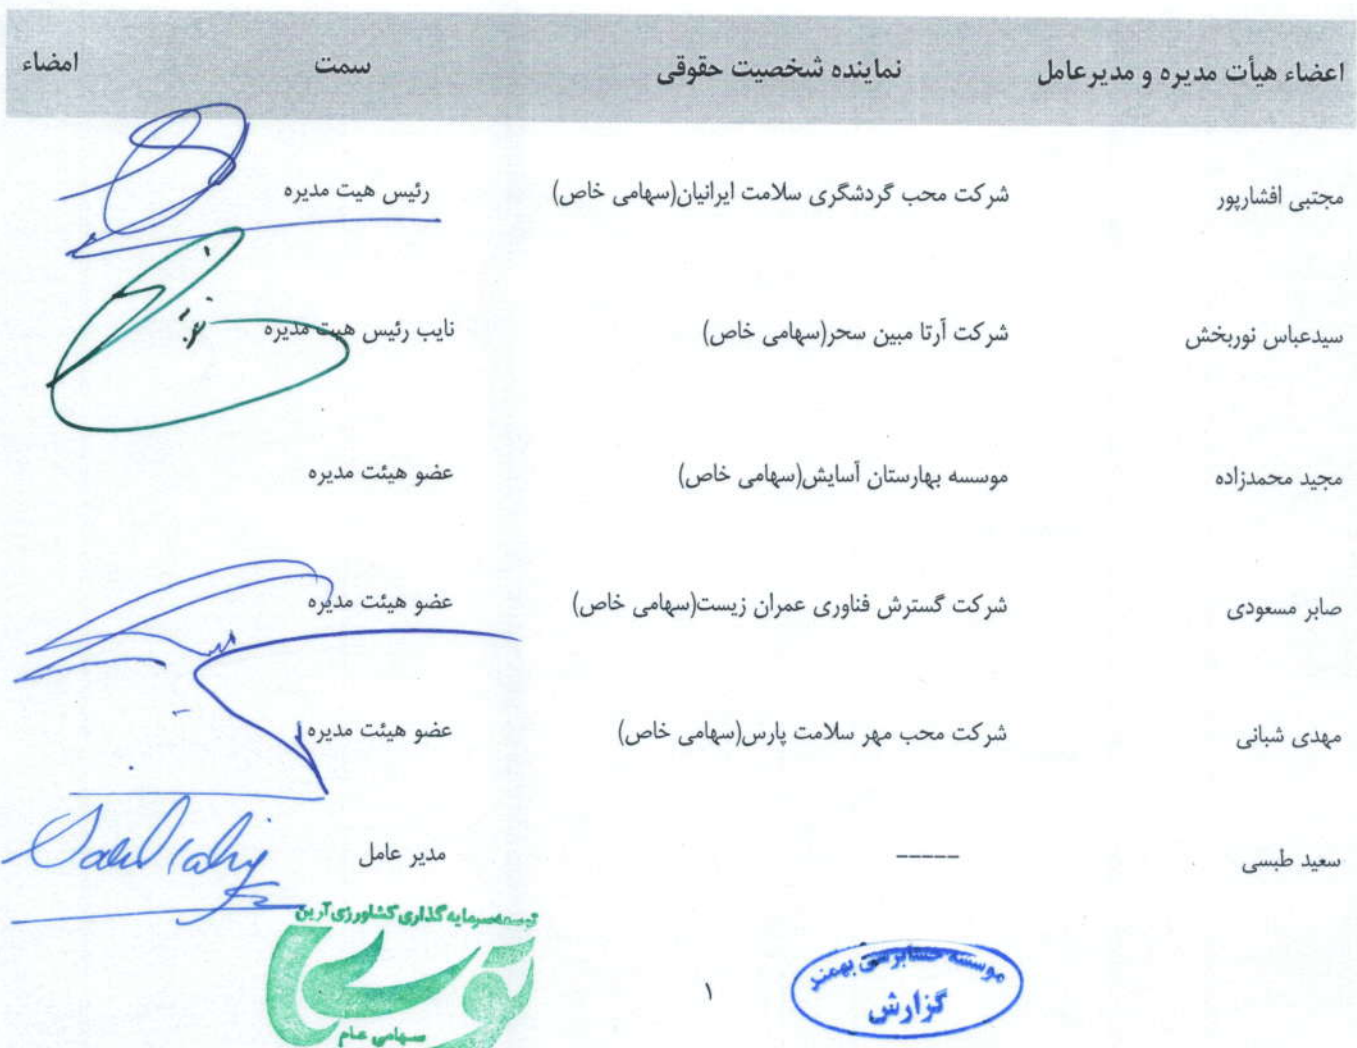 اعضاء هیأت مدیره و مدیرعامل نماینده شخصیت حقوقی سمت امضاء
مجتبی افشارپور شرکت محب گردشگری سلامت ایرانیان(سهامی خاص) رئیس هیت مدیره
سیدعباس نوربخش شرکت آرتا مبین سحر(سهامی خاص) نایب رئیس هیت مدیره
مجید محمدزاده موسسه بهارستان آسایش(سهامی خاص) عضو هیئت مدیره
صابر مسعودی شرکت گسترش فناوری عمران زیست(سهامی خاص) عضو هیئت مدیره
مهدی شبانی شرکت محب مهر سلامت پارس(سهامی خاص) عضو هیئت مدیره
سعید طبسی ----- مدیر عامل
توسعه سرمایه گذاری کشاورزی آرین
سهامی عام
موسسه حسابرسی بهمند
گزارش
۱